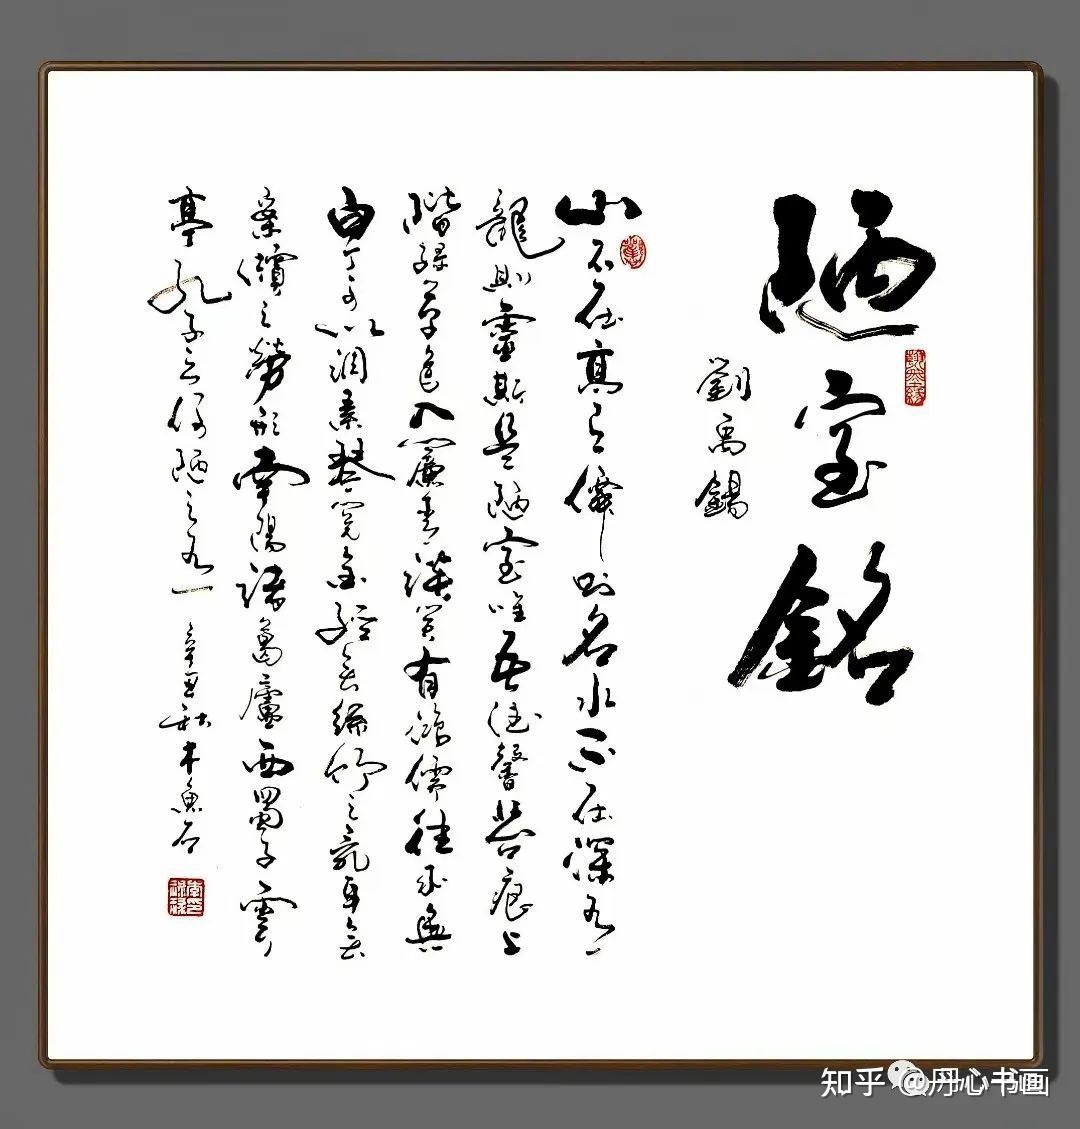 陋室銘
劉禹錫
山不在高有僊則名水不在深有
龍則靈斯是陋室唯吾德馨苔痕上
階緑草色入簾青談笑有鴻儒往来無
白丁可以調素琴閲金經無絲竹之亂耳無
案牘之勞形南陽諸葛廬西蜀子雲
亭孔子云何陋之有 辛丑秋木魚石
知乎 @丹心书画